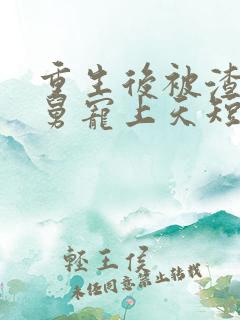 重生後被渣
舅寵上天短
輕王侯
未經同意禁止轉載